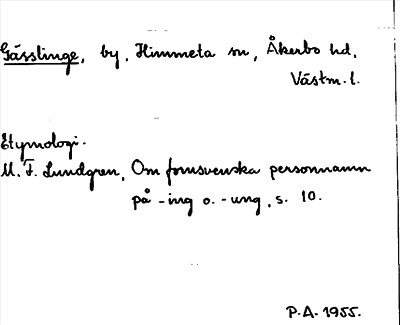 Gässlinge, by, Himmeta sn, Åkerbo hd,
Västm. l.
Etymologi.
M. F. Lundgren, Om fornsvenska personnamn
på -ing o. -ung, s. 10.
P.A. 1955.